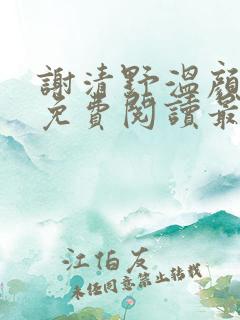 謝清野溫顏
免費閱讀最
江伯友
未經同意禁止轉載